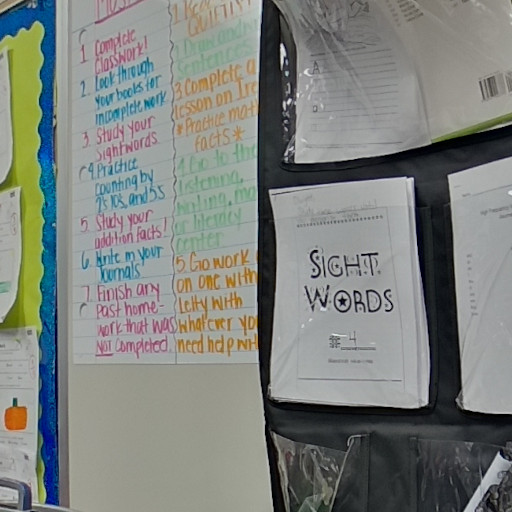 1. Complete
classwork!
2. Look through
your books for
incomplete work
3. Study your
sightwords.
4. Practice
counting by
2's, 10s, and 5's
5. Study your
addition facts!
6. Write in your
Journals
7. Finish any
past home-
work that was
NOT completed.
2. Draw and
Sentences
3. Complete a
lesson on Ire
*Practice mat
facts*
4. Go to the
listening,
writing, ma
or literacy
center
5. Go work
on one with
Lefty with
whatever yo
need help wit
SIGHT
WORDS
# 4